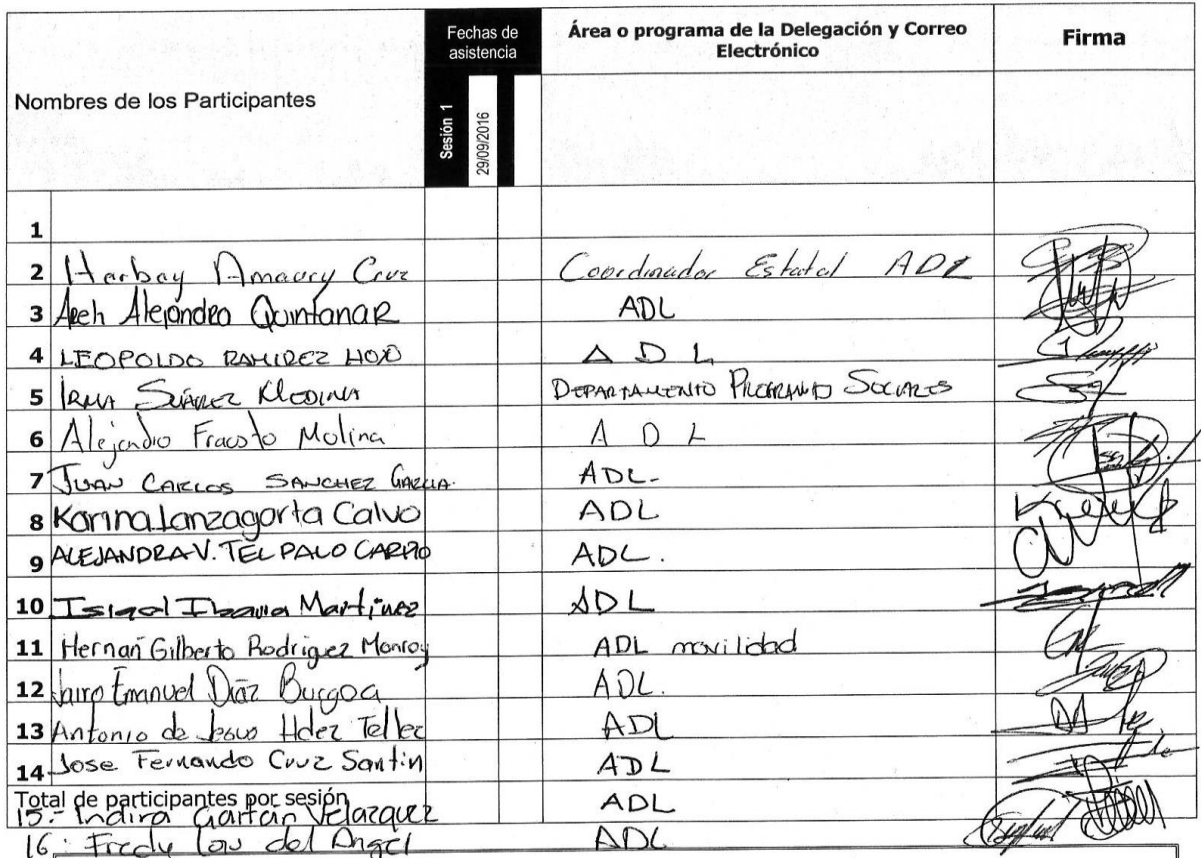 Nombres de los Participantes
Fechas de asistencia
Sesión 1
29/09/2016
Área o programa de la Delegación y Correo Electrónico
Firma
1
2 Amaury Cruz Coordinador Estatal ADL
3 Alejandra Quintanar ADL
4 LEOPOLDO RAMIREZ ADL
5 IRMA SUÁREZ MEDINA DEPARTAMENTO PROGRAMAS SOCIALES
6 Alejandro Molina ADL
7 JUAN CARLOS SANCHEZ GARCIA. ADL.
8 Karina Lanzagorta Calvo ADL
9 ALEJANDRA V. TELPALO CARPIO ADL.
10 Martinez ADL
11 Hernan Gilberto Rodriguez Monroy ADL movilidad
12 Jairo Emanuel Diaz Burgoa ADL.
13 Antonio de Jesus Hdez Tellez ADL
14 Jose Fernando Cruz Santin ADL
Total de participantes por sesión
15.- Indira Gaitan Velazquez ADL
16.- Fredy del Angel ADL